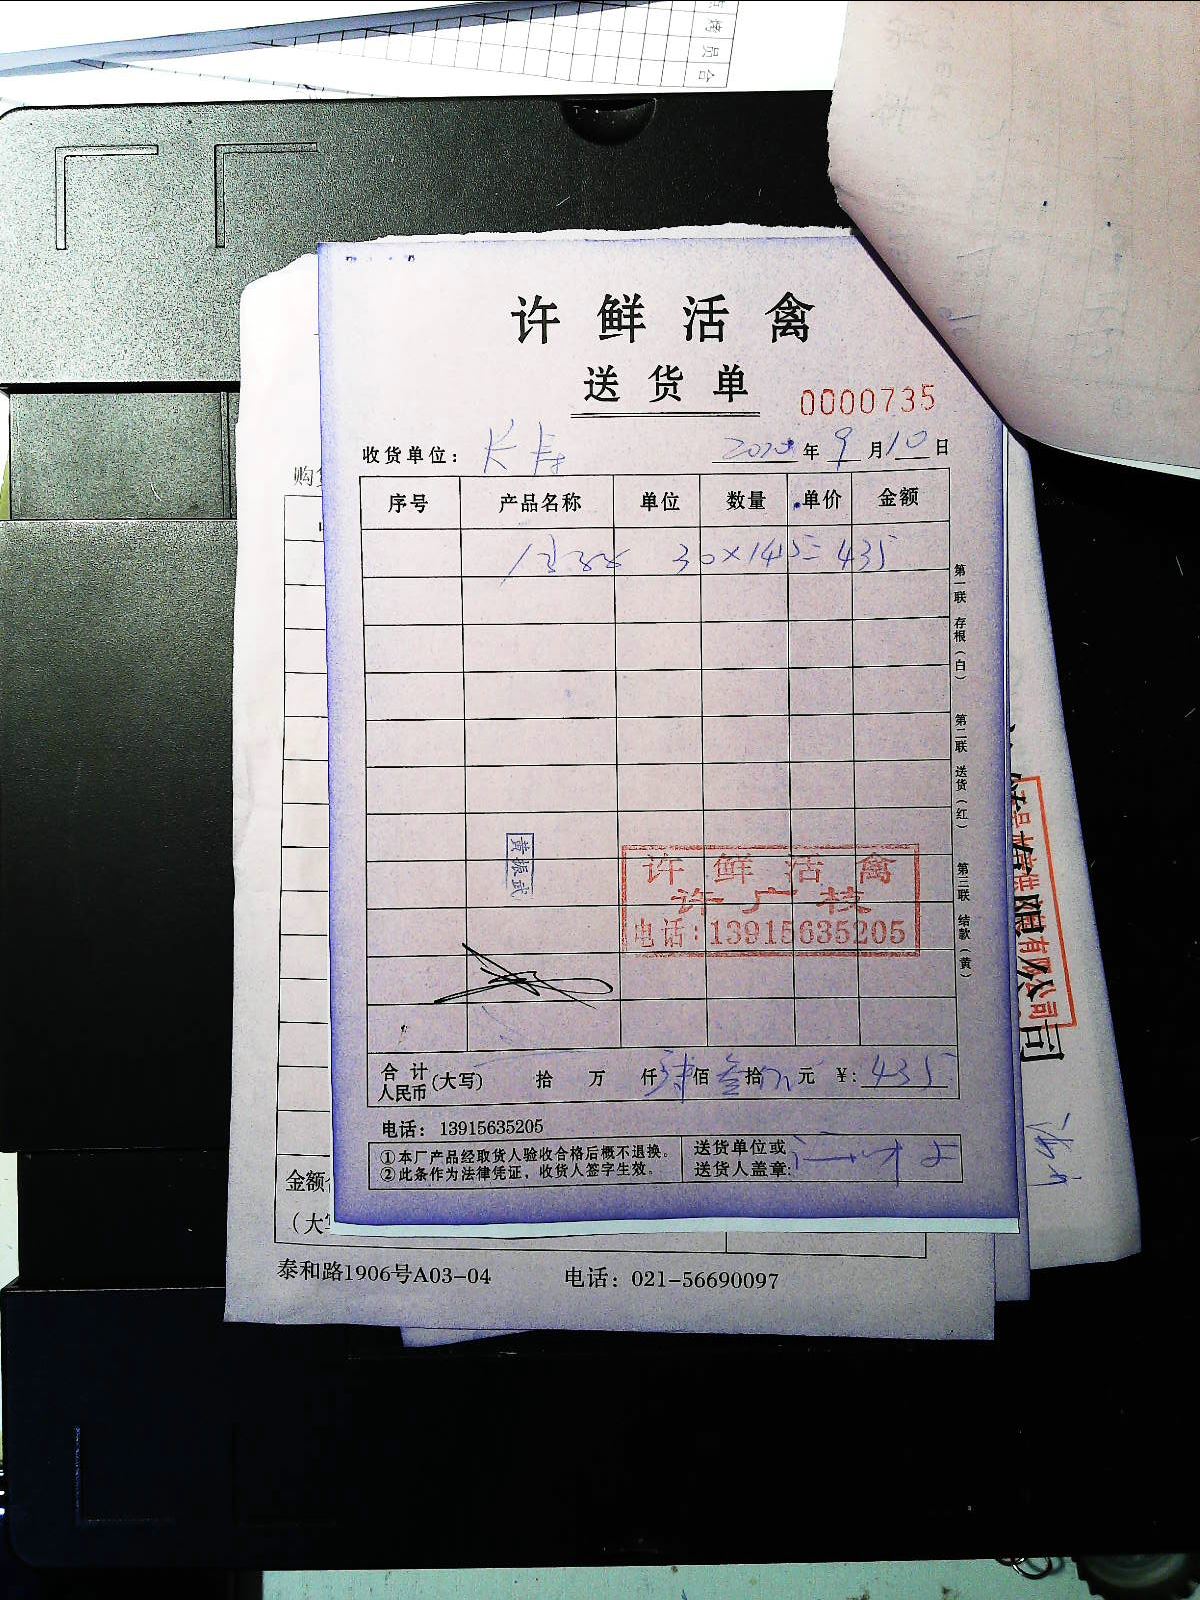 许鲜活禽
送货单
0000735
收货单位： 长寿
2020年9月10日
序号 产品名称 单位 数量 单价 金额
30×14.5=435
第一联 存根（白）
第二联 送货（红）
第三联 结款（黄）
黄振武
许鲜活禽
许广枝
电话:13915635205
合计人民币(大写) 拾 万 仟 肆佰 叁拾 元 ￥: 435
电话：13915635205
①本厂产品经取货人验收合格后概不退换。
②此条作为法律凭证，收货人签字生效。
送货单位或
送货人盖章:
购
金额
（大
有限公司
限公司
泰和路1906号A03-04 电话：021-56690097